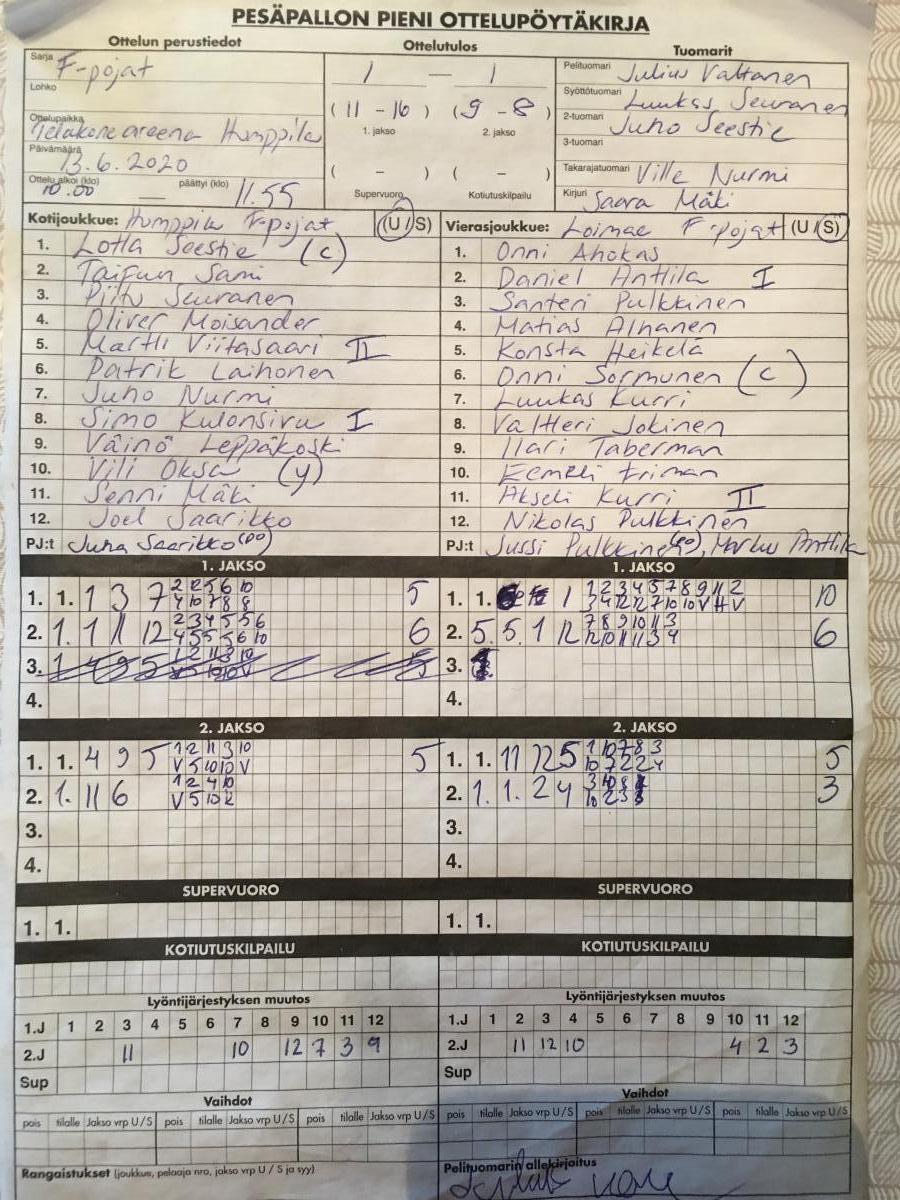 PESÄPALLON PIENI OTTELUPÖYTÄKIRJA
Ottelun perustiedot
Ottelutulos
Tuomarit
Sarja F-pojat
Lohko
Ottelupaikka
Humppila
Päivämäärä 13.6.2020
Ottelu alkoi (klo) 10.00 päättyi (klo) 11.55
1 — 1
(11 - 16) (9 - 8)
1. jakso 2. jakso
( - ) ( - )
Supervuoro Kotiutuskilpailu
Pelituomari Julius Valtanen
Syöttötuomari Luukas Seuranen
2-tuomari Juho Seestie
3-tuomari
Takarajatuomari Ville Nurmi
Kirjuri Saara Mäki
Kotijoukkue: Humppila F-pojat (U/S)
1. Lotta Seestie (C)
2. Taifun Sami
3. Piitu Seuranen
4. Oliver Moisander
5. Martti Viitasaari II
6. Patrik Laihonen
7. Juho Nurmi
8. Simo Kulonsivu I
9. Väinö Leppäkoski
10. Vili Oksa (y)
11. Senni Mäki
12. Joel Saarikko
PJ:t Juha Saarikko (po)
Vierasjoukkue: Loimae F-pojat (U/S)
1. Onni Ahokas
2. Daniel Anttila I
3. Santeri Pulkkinen
4. Matias Alhanen
5. Konsta Heikelä
6. Onni Sormunen (C)
7. Luukas Kurri
8. Valtteri Jokinen
9. Ilari Taberman
10. Eemeli Friman
11. Akseli Kurri II
12. Nikolas Pulkkinen
PJ:t Jussi Pulkkinen (po), Marko Anttila
1. JAKSO
1. 1. 1 3 7 5
2. 1. 1 11 12 6
3.
4.
1. JAKSO
1. 1. 1 10
2. 5. 5. 1 12 6
3.
4.
2. JAKSO
1. 1. 4 9 5 1 2 11 3 10 5
V 5 10 10 V
2. 1. 11 6 1 2 4 10
V 5 10
3.
4.
2. JAKSO
1. 1. 11 12 5 1 10 7 8 3 5
10 7 2 2 4
2. 1. 1. 2 4 3
3.
4.
SUPERVUORO
1. 1.
SUPERVUORO
1. 1.
KOTIUTUSKILPAILU
KOTIUTUSKILPAILU
Lyöntijärjestyksen muutos
1.J 1 2 3 4 5 6 7 8 9 10 11 12
2.J 11 10 12 7 3 9
Sup
Lyöntijärjestyksen muutos
1.J 1 2 3 4 5 6 7 8 9 10 11 12
2.J 11 12 10 4 2 3
Sup
Vaihdot
pois tilalle Jakso vrp U/S pois tilalle Jakso vrp U/S pois tilalle Jakso vrp U/S
Vaihdot
pois tilalle Jakso vrp U/S pois tilalle Jakso vrp U/S pois tilalle Jakso vrp U/S
Rangaistukset (joukkue, pelaaja nro, jakso vrp U / S ja syy)
Pelituomarin allekirjoitus